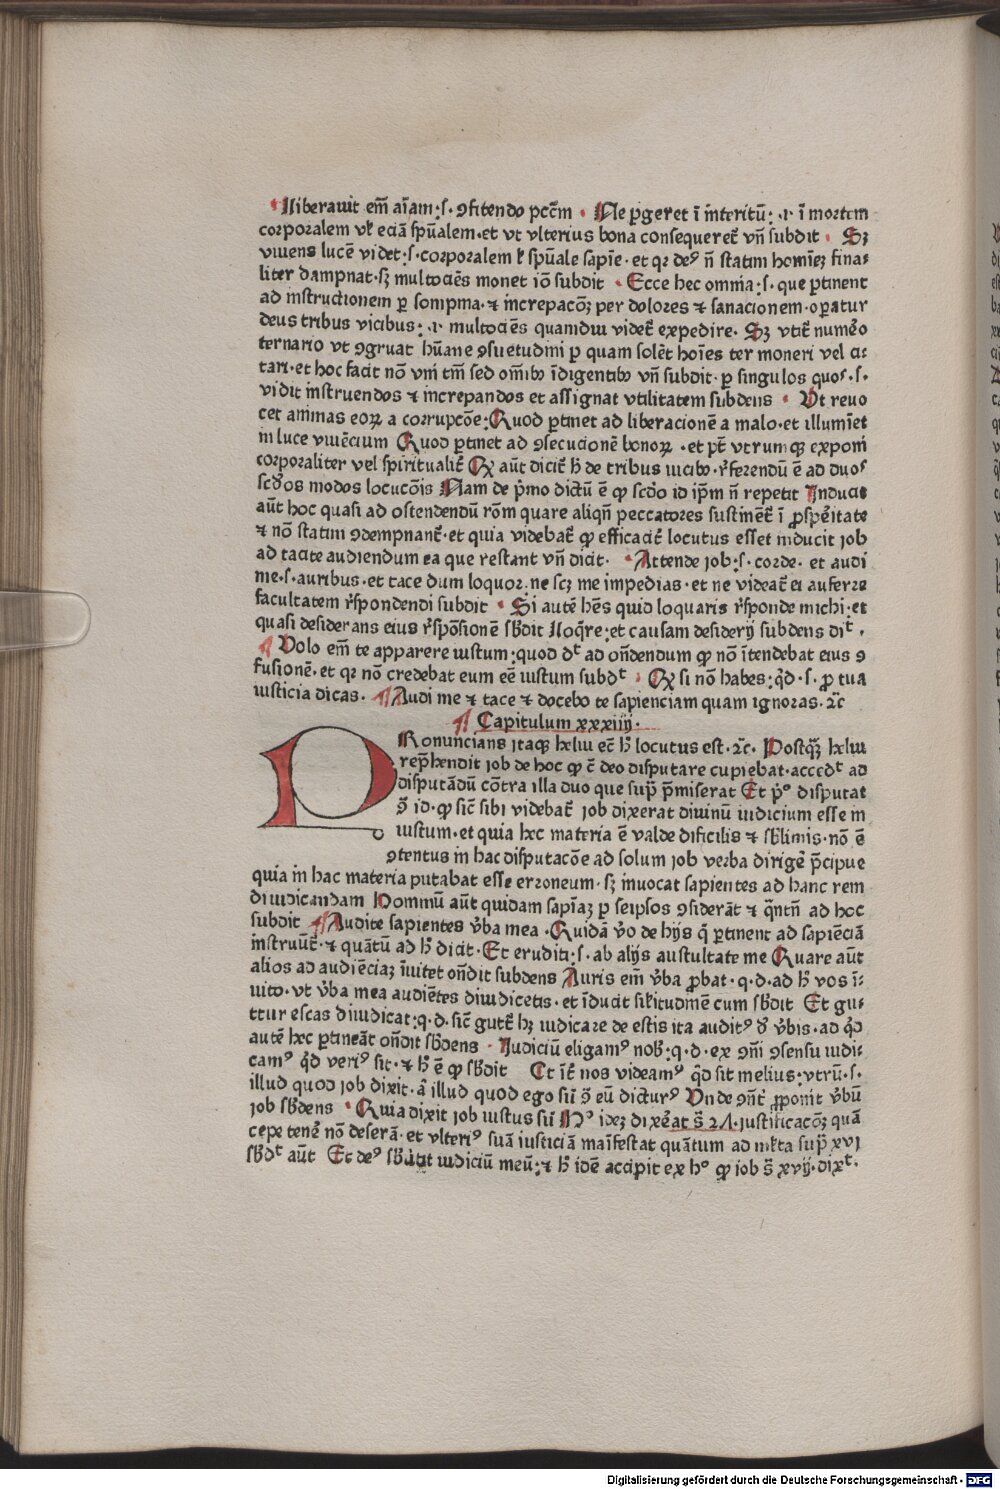 Iiberauit em̄ aīam:ſ· ꝯfitendo pcc̄m · Ne ꝑgeret ī interitū: ·i· ī mortem
corporalem vꝉ eciā ſpūalem·et vt vlterius bona conſequeret᷑ vn̄ ſubdit · Sꝫ
viuens lucē videt:ſ·corporalem ꝉ ſpūale ſapīe·et qꝛ deꝰ n̄ ſtatim homīeꝫ fina⸗
liter dampnat·ſꝫ multociēs monet iō ſubdit · Ecce hec omnia:ſ· que ꝑtinent
ad inſtructionem ꝑ ſompnia·⁊ increpacōꝫ per dolores ⁊ ſanacionem·oꝑatur
deus tribus vicibus: ·i· multociēs quamdiu videt᷑ expedire· Sꝫ vtit᷑ numēo
ternario vt ꝯgruat hūane ꝯſuetudini ꝑ quam ſolēt hoīes ter moneri vel ci⸗
tari·et hoc facit nō vni tm̄ ſed om̄ibꝰ īdigentibꝰ vn̄ ſubdit· ꝑ ſingulos quoſ·ſ·
vidit inſtruendos ⁊ increpandos et aſſignat vtilitatem ſubdens · Ut reuo
cet animas eoꝝ a corrupcōe:Quod ꝑtinet ad liberacionē a malo·et illumīet
in luce viuēcium Quod ꝑtinet ad ꝯſecucionē bonoꝝ ·et pt̄ vtrumqꝫ exponi
corporaliter vel ſpiritualit᷑ Qꝛ aūt dicit᷑ h̄ de tribus vicibꝰ·r̄ferendū ē ad duoſ
ſcd̄os modos locucōis Nam de p̄mo dictū ē ꝙ ſcd̄o id ip̄m n̄ repetit Inducit
aūt hoc quaſi ad oſtendendū rōm quare aliqn̄ peccatores ſuſtinēt᷑ ī ꝓſꝑitate
⁊ nō ſtatim ꝯdempnant᷑·et quia videbat᷑ ꝙ efficacit᷑ locutus eſſet inducit job
ad tacite audiendum ea que reſtant vn̄ dicit· · Attende job:ſ· corde· et audi
me·ſ·auribus·et tace dum loquor·ne ſcꝫ me impedias·et ne videat᷑ ei auferre
facultatem r̄ſpondendi ſubdit · Si autē hēs quid loquaris r̄ſponde michi·et
quaſi deſiderans eius r̄ſpōſionē ſb̄dit loq̄re:et cauſam deſiderij ſubdens dit·
¶ Volo em̄ te apparere iuſtum:quod dt ad on̄dendum ꝙ nō ītendebat eius ꝯ
fuſionē·et qꝛ nō credebat eum eē iuſtum ſubdt · Qꝛ ſi nō habes:qd̄·ſ·ꝓ tua
iuſticia dicas· ¶Audi me ⁊ tace ⁊ docebo te ſapienciam quam ignoras·⁊c̄
¶ Capitulum xxxiiij·
PRonuncians itaqꝫ heliu ec̄ h̄ locutus eſt·⁊c̄· Poſtqꝫ̄ heliu
rep̄hendit job de hoc ꝙ c̄ deo diſputare cupiebat·accedt ad
diſputādū cōtra illa duo que ſup̄ p̄miſerat Et p̄o diſputat
ꝯ̄ id·ꝙ ſic̄ ſibi videbat᷑ job dixerat diuinū iudicium eſſe in
iuſtum·et quia hec materia ē valde dificilis ⁊ ſb̄limis·nō ē
ꝯtentus in hac diſputacōe ad ſolum job verba dirigē p̄cipue
quia in hac materia putabat eſſe erroneum·ſꝫ inuocat ſapientes ad hanc rem
diiudicandam Hominū aūt quidam ſapīaꝫ ꝑ ſeipſos ꝯſiderāt ⁊ q̄ntn̄ ad hoc
ſubdit ¶Audite ſapientes v̄ba mea ·Quidā v̄o de hijs q̄ ꝑtinent ad ſapiēciā
inſtruūt᷑·⁊ quātū ad h̄ dicit·Et eruditi:ſ· ab alijs auſcultate me Quare aūt
alios ad audiēciaꝫ īuitet on̄dit ſubdens Auris em̄ v̄ba ꝓbat·q·d·ad h̄ vos ī⸗
uito·vt v̄ba mea audiētes diiudicetis·et īducit ſil̄itudinē cum ſb̄dit Et gu⸗
ttur eſcas diiudicat:q·d·ſic̄ gutt᷑ hꝫ iudicare de eſcis ita auditꝰ d̄ v̄bis·ad qd̄
autē hec ꝑtineāt on̄dit ſb̄dens · Iudiciū eligamꝰ nob̄:q·d·ex ꝯn̄i ꝯſenſu iudi⸗
camꝰ qd̄ veriꝰ ſit·⁊ h̄ ē ꝙ ſb̄dit Et īt᷑ nos videamꝰ qd̄ ſit melius:vtrū·ſ·
illud quod job dixit·ā illud quod ego ſū ꝯ̄ eū dicturꝰ Vnde ꝯn̄t᷑ ꝓponit v̄bū
job ſb̄dens · Quia dixit job iuſtus ſū Hꝰ ideꝫ dixēat ſ̄ 27·juſtificacōꝫ quā
cepe tenē nō deſerā·et vlteriꝰ ſuā iuſticiā maīfeſtat quātum ad ml̄ta ſup̄ xvj
ſb̄dt aūt Et deꝰ ſb̄ūtit iudiciū meū:⁊ h̄ idē accipit ex ho ꝙ job ſ̄ xvij·dixt·
Digitalisierung gefördert durch die Deutsche Forschungsgemeinschaft - DFG